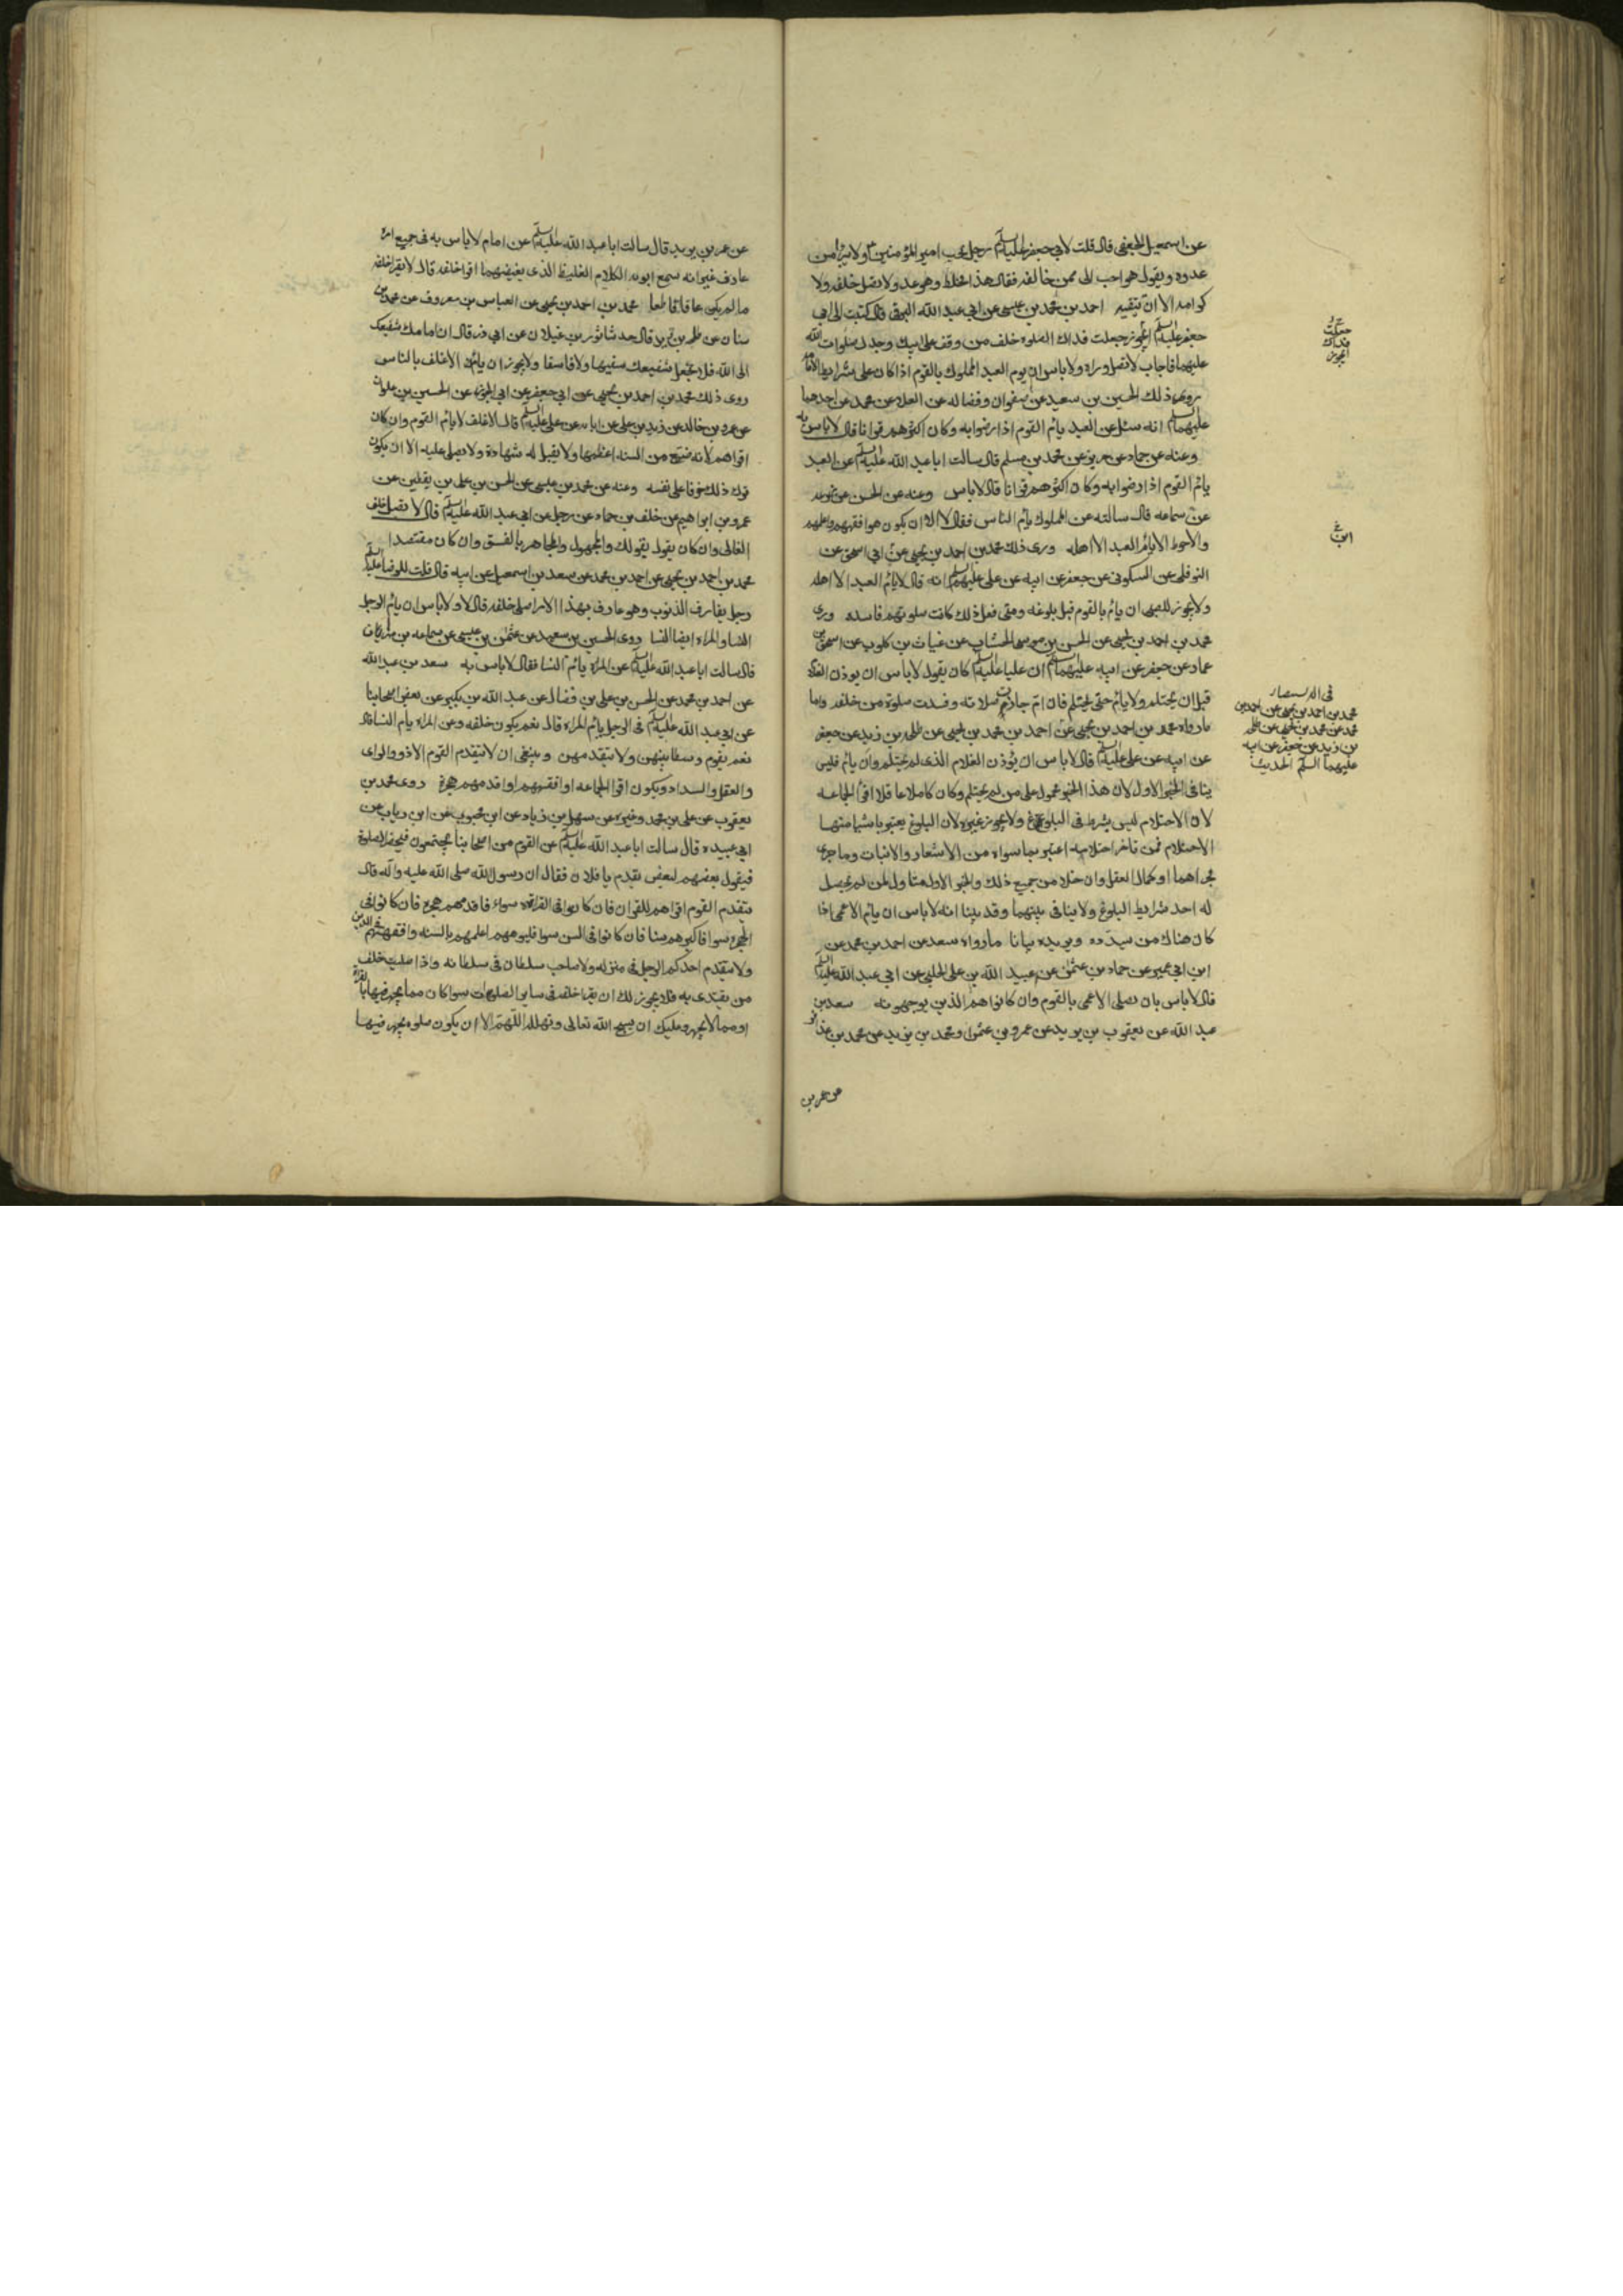 عن اسمعيل الجعفى قال قلت لابى جعفر عليه السلم رجل يحب امير المؤمنين ع ولا يتبرا من
عدوه ويقول هو احب الى ممن خالفه فقال هذا مخلط وهو عدو ولا تصل خلفه ولا
كرامه الا ان تتقيه احمد بن محمد بن عيسى عن ابى عبد الله البرقى قال كتبت الى ابى
جعفر عليه السلم ايجوز جعلت فداك الصلوه خلف من وقف على ابيك وجدك صلوات الله
عليهما فاجاب لا تصل وراه ولا باس ان يوم العبد المملوك بالقوم اذا كان على شرايط الامامه
روى ذلك الحسين بن سعيد عن صفوان وفضاله عن العلاء عن محمد عن احدهما
عليهما السلم انه سئل عن العبد يام القوم اذا رضوا به وكان اكثرهم قرانا قال لا باس به
وعنه عن حماد عن حريز عن محمد بن مسلم قال سالت ابا عبد الله عليه السلم عن العبد
يام القوم اذا رضوا به وكان اكثرهم قرانا قال لا باس وعنه عن الحسن عن زرعه
عن سماعه قال سالته عن المملوك يام الناس فقال لا الا ان يكون هو افقههم واعلمهم
والاحوط الا يام العبد الا اهله روى ذلك محمد بن احمد بن يحيى عن ابى اسحق عن
النوفلى عن السكونى عن جعفر عن ابيه عن على عليهم السلم انه قال لا يام العبد الا اهله
ولا يجوز للصبى ان يام بالقوم قبل بلوغه ومتى فعل ذلك كانت صلوتهم فاسده روى
محمد بن احمد بن يحيى عن الحسن بن موسى الخشاب عن غياث بن كلوب عن اسحق بن
عمار عن جعفر عن ابيه عليهما السلم ان عليا عليه السلم كان يقول لا باس ان يوذن الغلام
قبل ان يحتلم ولا يام حتى يحتلم فان ام جازت صلاته وفسدت صلوة من خلفه واما
ما رواه محمد بن احمد بن يحيى عن احمد بن محمد بن يحيى عن طلحه بن زيد عن جعفر
عن ابيه عن على عليه السلم قال لا باس ان يؤذن الغلام الذى لم يحتلم وان يام فليس
ينافى الخبر الاول لان هذا الخبر محمول على من لم يحتلم وكان كاملا عاقلا اقرأ الجماعه
لان الاحتلام ليس بشرط فى البلوغ ولا يجوز غيره لان البلوغ يعتبر باشيا منها
الاحتلام فمن تاخر احتلامه اعتبر بما سواه من الاشعار والانبات وما جرى
مجراهما او كمال العقل وان خلا من جميع ذلك والخبر الاول متناول لمن لم يحصل
له احد شرايط البلوغ ولا ينافى بينهما وقد بينا انه لا باس ان يام الاعمى اذا
كان هناك من يسدده ويزيده بيانا ما رواه سعد عن احمد بن محمد عن
ابن ابى عمير عن حماد بن عثمن عن عبيد الله بن على الحلبى عن ابى عبد الله عليه السلم
قال لا باس بان يصلى الاعمى بالقوم وان كانوا هم الذين يوجهونه سعد بن
عبد الله عن يعقوب بن يزيد عن عمرو بن عثمن ومحمد بن يزيد عن محمد بن عذافر
عن عمر بن
جعلت
فداك
ايجوز
فى الاستبصار
محمد بن احمد بن يحيى عن احمد بن
محمد عن محمد بن يحيى عن طلحه
بن زيد عن جعفر عن ابيه
عليهما السلم الحديث
عن عمر بن يزيد قال سالت ابا عبد الله عليه السلم عن امام لا باس به فى جميع امره
عارف غير انه يسمع ابويه الكلام الغليظ الذى يغيظهما اقرا خلفه قال لا تقرا خلفه
ما لم يكن عاقا قاطعا محمد بن احمد بن يحيى عن العباس بن معروف عن محمد بن
سنان عن طلحه بن زيد قال حدثنا ثور بن غيلان عن ابى ذر قال ان امامك شفيعك
الى الله فلا تجعل شفيعك سفيها ولا فاسقا ولا يجوز ان يام الاغلف بالناس
روى ذلك محمد بن احمد بن يحيى عن ابى جعفر عن ابى الجوزا عن الحسين بن علوان
عن عمرو بن خالد عن زيد بن على عن ابائه عن على عليه السلم قال الاغلف لا يام القوم وان كان
اقراهم لانه ضيع من السنه اعظمها ولا يقبل له شهادة ولا يصلى عليه الا ان يكون
ترك ذلك خوفا على نفسه وعنه عن محمد بن عيسى عن الحسن بن على بن يقطين عن
عمرو بن ابراهيم عن خلف بن حماد عن رجل عن ابى عبد الله عليه السلم قال لا تصل خلف
الغالى وان كان يقول بقولك والمجهول والمجاهر بالفسق وان كان مقتصدا
محمد بن احمد بن يحيى عن احمد بن محمد عن سعد بن اسمعيل عن ابيه قال قلت للرضا عليه السلم
رجل يقارف الذنوب وهو عارف بهذا الامر اصلى خلفه قال لا ولا باس ان يام الرجل
النسا والمراه ايضا النسا روى الحسين بن سعيد عن عثمن بن عيسى عن سماعه بن مهران
قال سالت ابا عبد الله عليه السلم عن المراه يام النسا فقال لا باس به سعد بن عبد الله
عن احمد بن محمد عن الحسن بن على بن فضال عن عبد الله بن بكير عن بعض اصحابنا
عن ابى عبد الله عليه السلم فى الرجل يام المراه قال نعم يكون خلفه وعن المراه يام النسا قال
نعم يقوم وسطا بينهن ولا يتقدمهن وينبغى ان لا يتقدم القوم الا ذوو الراى
والعقل والسداد ويكون اقرا الجماعه او افقههم او اقدمهم هجرة روى محمد بن
يعقوب عن على بن محمد وغيره عن سهل بن زياد عن ابن محبوب عن ابن رياب عن
ابى عبيده قال سالت ابا عبد الله عليه السلم عن القوم من اصحابنا يجتمعون فيحضر الصلوة
فيقول بعضهم لبعض تقدم يا فلان فقال ان رسول الله صلى الله عليه واله قال
يتقدم القوم اقراهم للقران فان كانوا فى القراءه سواء فاقدمهم هجرة فان كانوا فى
الهجره سوا فاكبرهم سنا فان كانوا فى السن سوا فليومهم اعلمهم بالسنه وافقههم فى الدين
ولا يتقدم احدكم الرجل فى منزله ولا صاحب سلطان فى سلطانه واذا صليت خلف
من يقتدى به فلا يجوز لك ان يقرا خلفه فى ساير الصلوات سوا كان مما يجهر فيها بالقراءة
او مما لا يجهر وعليك ان يسبح الله تعالى وتهلله اللهم الا ان يكون صلوه يجهر فيها